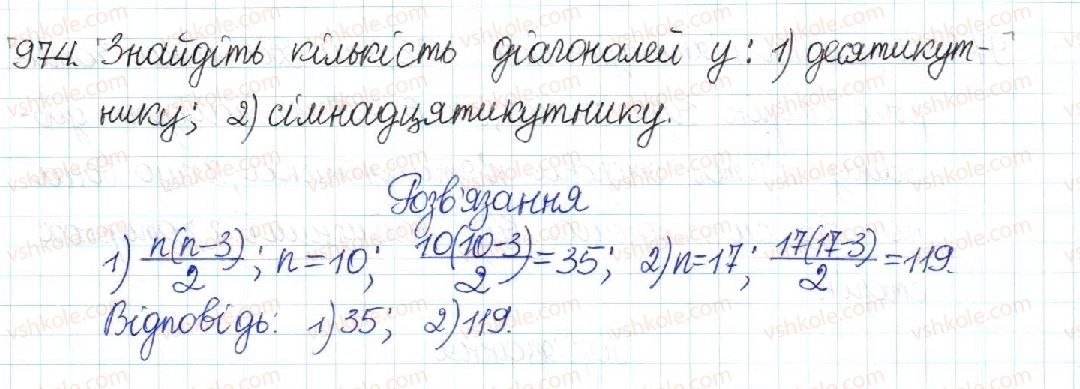 974. Знайдіть кількість діагоналей у: 1) десятикут-
нику; 2) сімнадцятикутнику.
Розв'язання
1) n(n-3)/2; n=10; 10(10-3)/2=35; 2) n=17; 17(17-3)/2=119.
Відповідь: 1) 35; 2) 119.